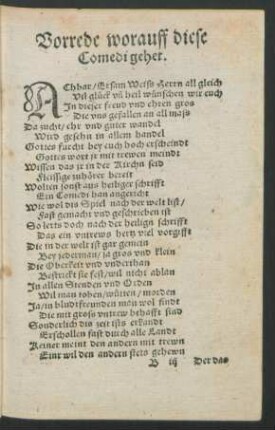 Vorrede worauff diese
Comedi gehet.
AChbar / Ersam Weise Herrn all gleich
Vil glück vñ heil wünschen wir euch
In dieser freud vnd ehren gros
Die vns gefallen an all mass
Da zucht / ehr vnd guter wandel
Wird gesehn in allem handel
Gottes furcht bey euch hoch erscheindt
Gottes wort jr mit trewen meindt
Wissen das jr in der Kirchn seid
Fleissige zuhörer bereit
Wolten sonst aus heiliger schrifft
Ein Comedi han angericht
Wie wol dis Spiel nach der welt list /
Fast gemacht vnd geschrieben ist
So lerts doch nach der heilign schrifft
Das ein vntrews hertz viel vorgifft
Die in der welt ist gar gemein
Bey jederman / ja gros vnd klein
Die Oberkeit vnd vnderthan
Bestrickt sie fest / wil nicht ablan
In allen Stenden vnd Orden
Wil man toben / wüten / morden
Ja / in bludtfreunden man wol findt
Die mit gross vntrew behafft sind
Sonderlich diz zeit ists erkandt
Erschollen fast durch alle Landt
Keiner meint den andern mit trewen
Einr wil den andern stets gehewn
B iij Der das